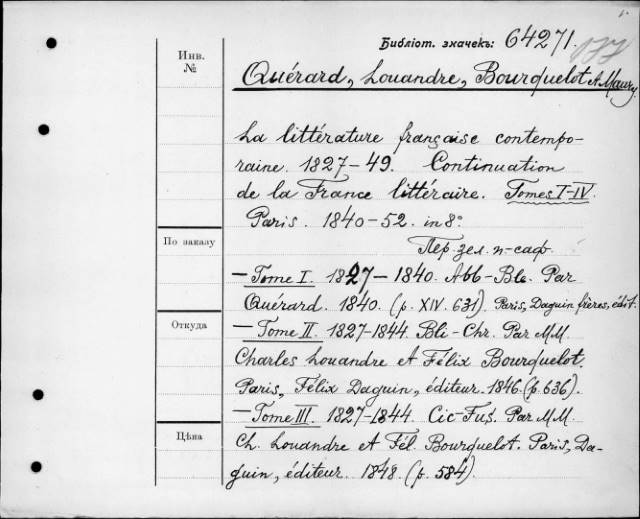 Библіот. значекъ: 64271.
Инв.
№
Quérard, Louandre, Bourquelot et Maury.
La littérature française contempo-
raine. 1827-49. Continuation
de la France littéraire. Tomes I-IV.
Paris. 1840-52. in 8º
По заказу
Пер. зел. п-саф.
— Tome I. 1827-1840. Abb-Ble. Par
Quérard. 1840. (p. XIV. 631). Paris, Daguin frères, édit.
Откуда
— Tome II. 1827-1844. Bli-Chr. Par MM.
Charles Louandre et Félix Bourquelot.
Paris, Félix Daguin, éditeur. 1846. (p. 636).
— Tome III. 1827-1844. Cic-Fus. Par MM.
Цѣна
Ch. Louandre et Fél. Bourquelot. Paris, Da-
guin, éditeur. 1848. (p. 584).